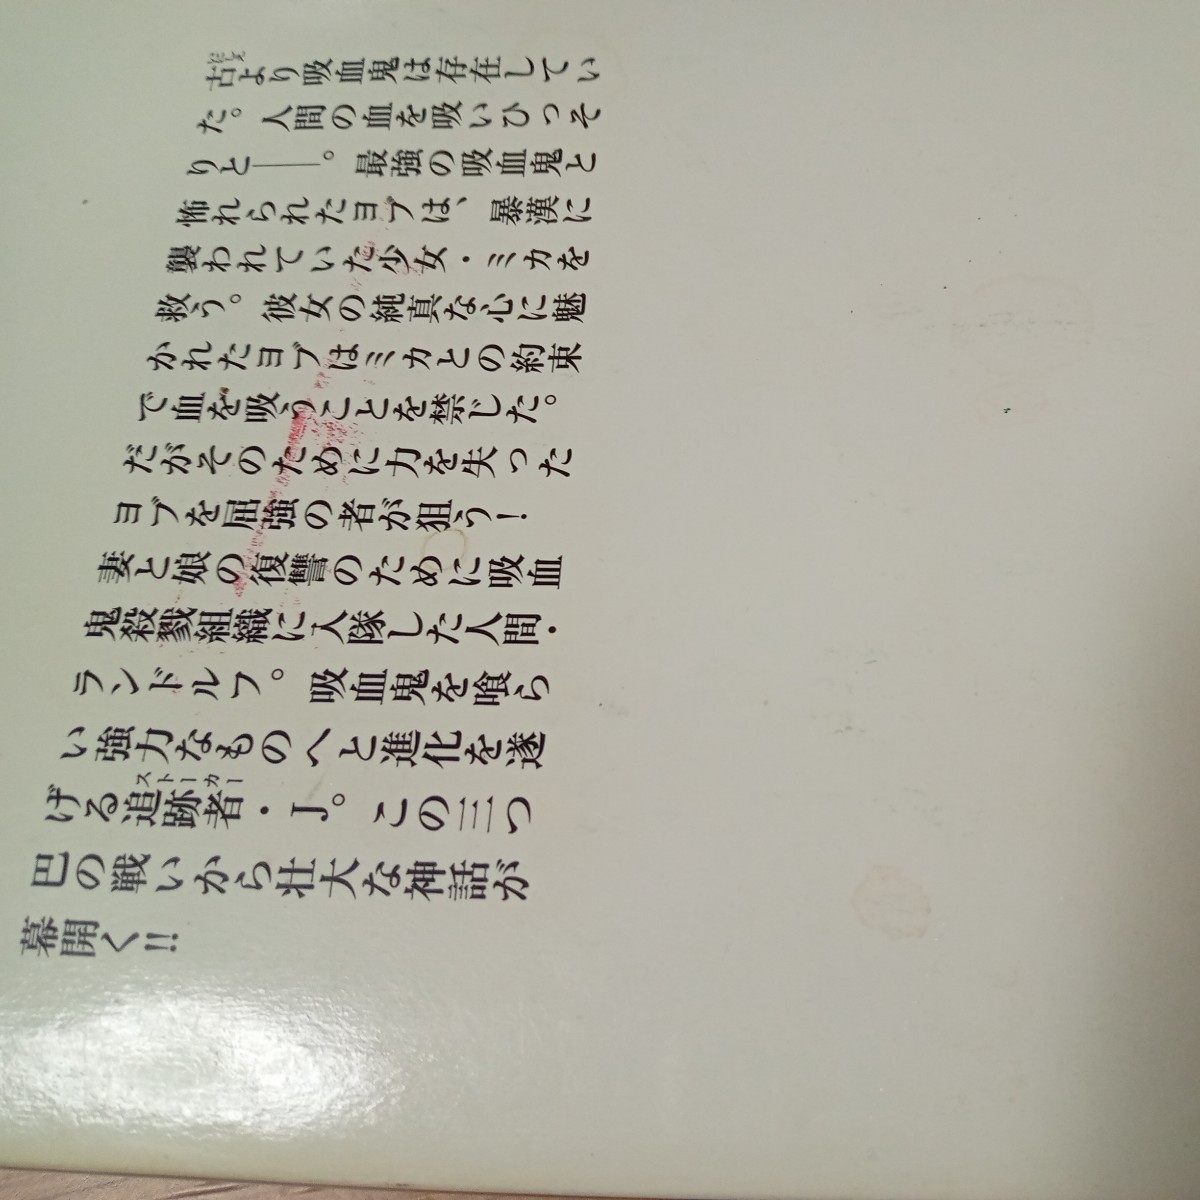 古より吸血鬼は存在してい
た。人間の血を吸いひっそ
りと――。最強の吸血鬼と
怖れられたヨブは、暴漢に
襲われていた少女・ミカを
救う。彼女の純真な心に魅
かれたヨブはミカとの約束
で血を吸うことを禁じた。
だがそのために力を失った
ヨブを屈強の者が狙う!
妻と娘の復讐のために吸血
鬼殺戮組織に入隊した人間・
ランドルフ。吸血鬼を喰ら
い強力なものへと進化を遂
ストーカー
げる追跡者・J。この三つ
巴の戦いから壮大な神話が
幕開く!!